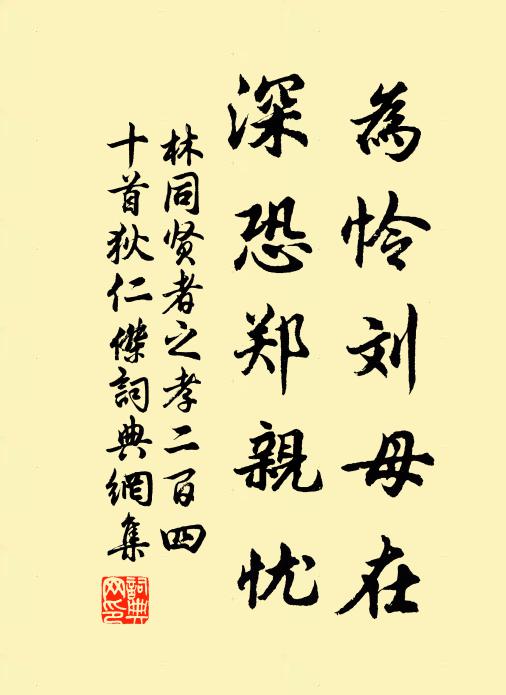 為怜刘母在
深恐郑親忧
林同贤者之孝二百四
十首狄仁傑詞典網集